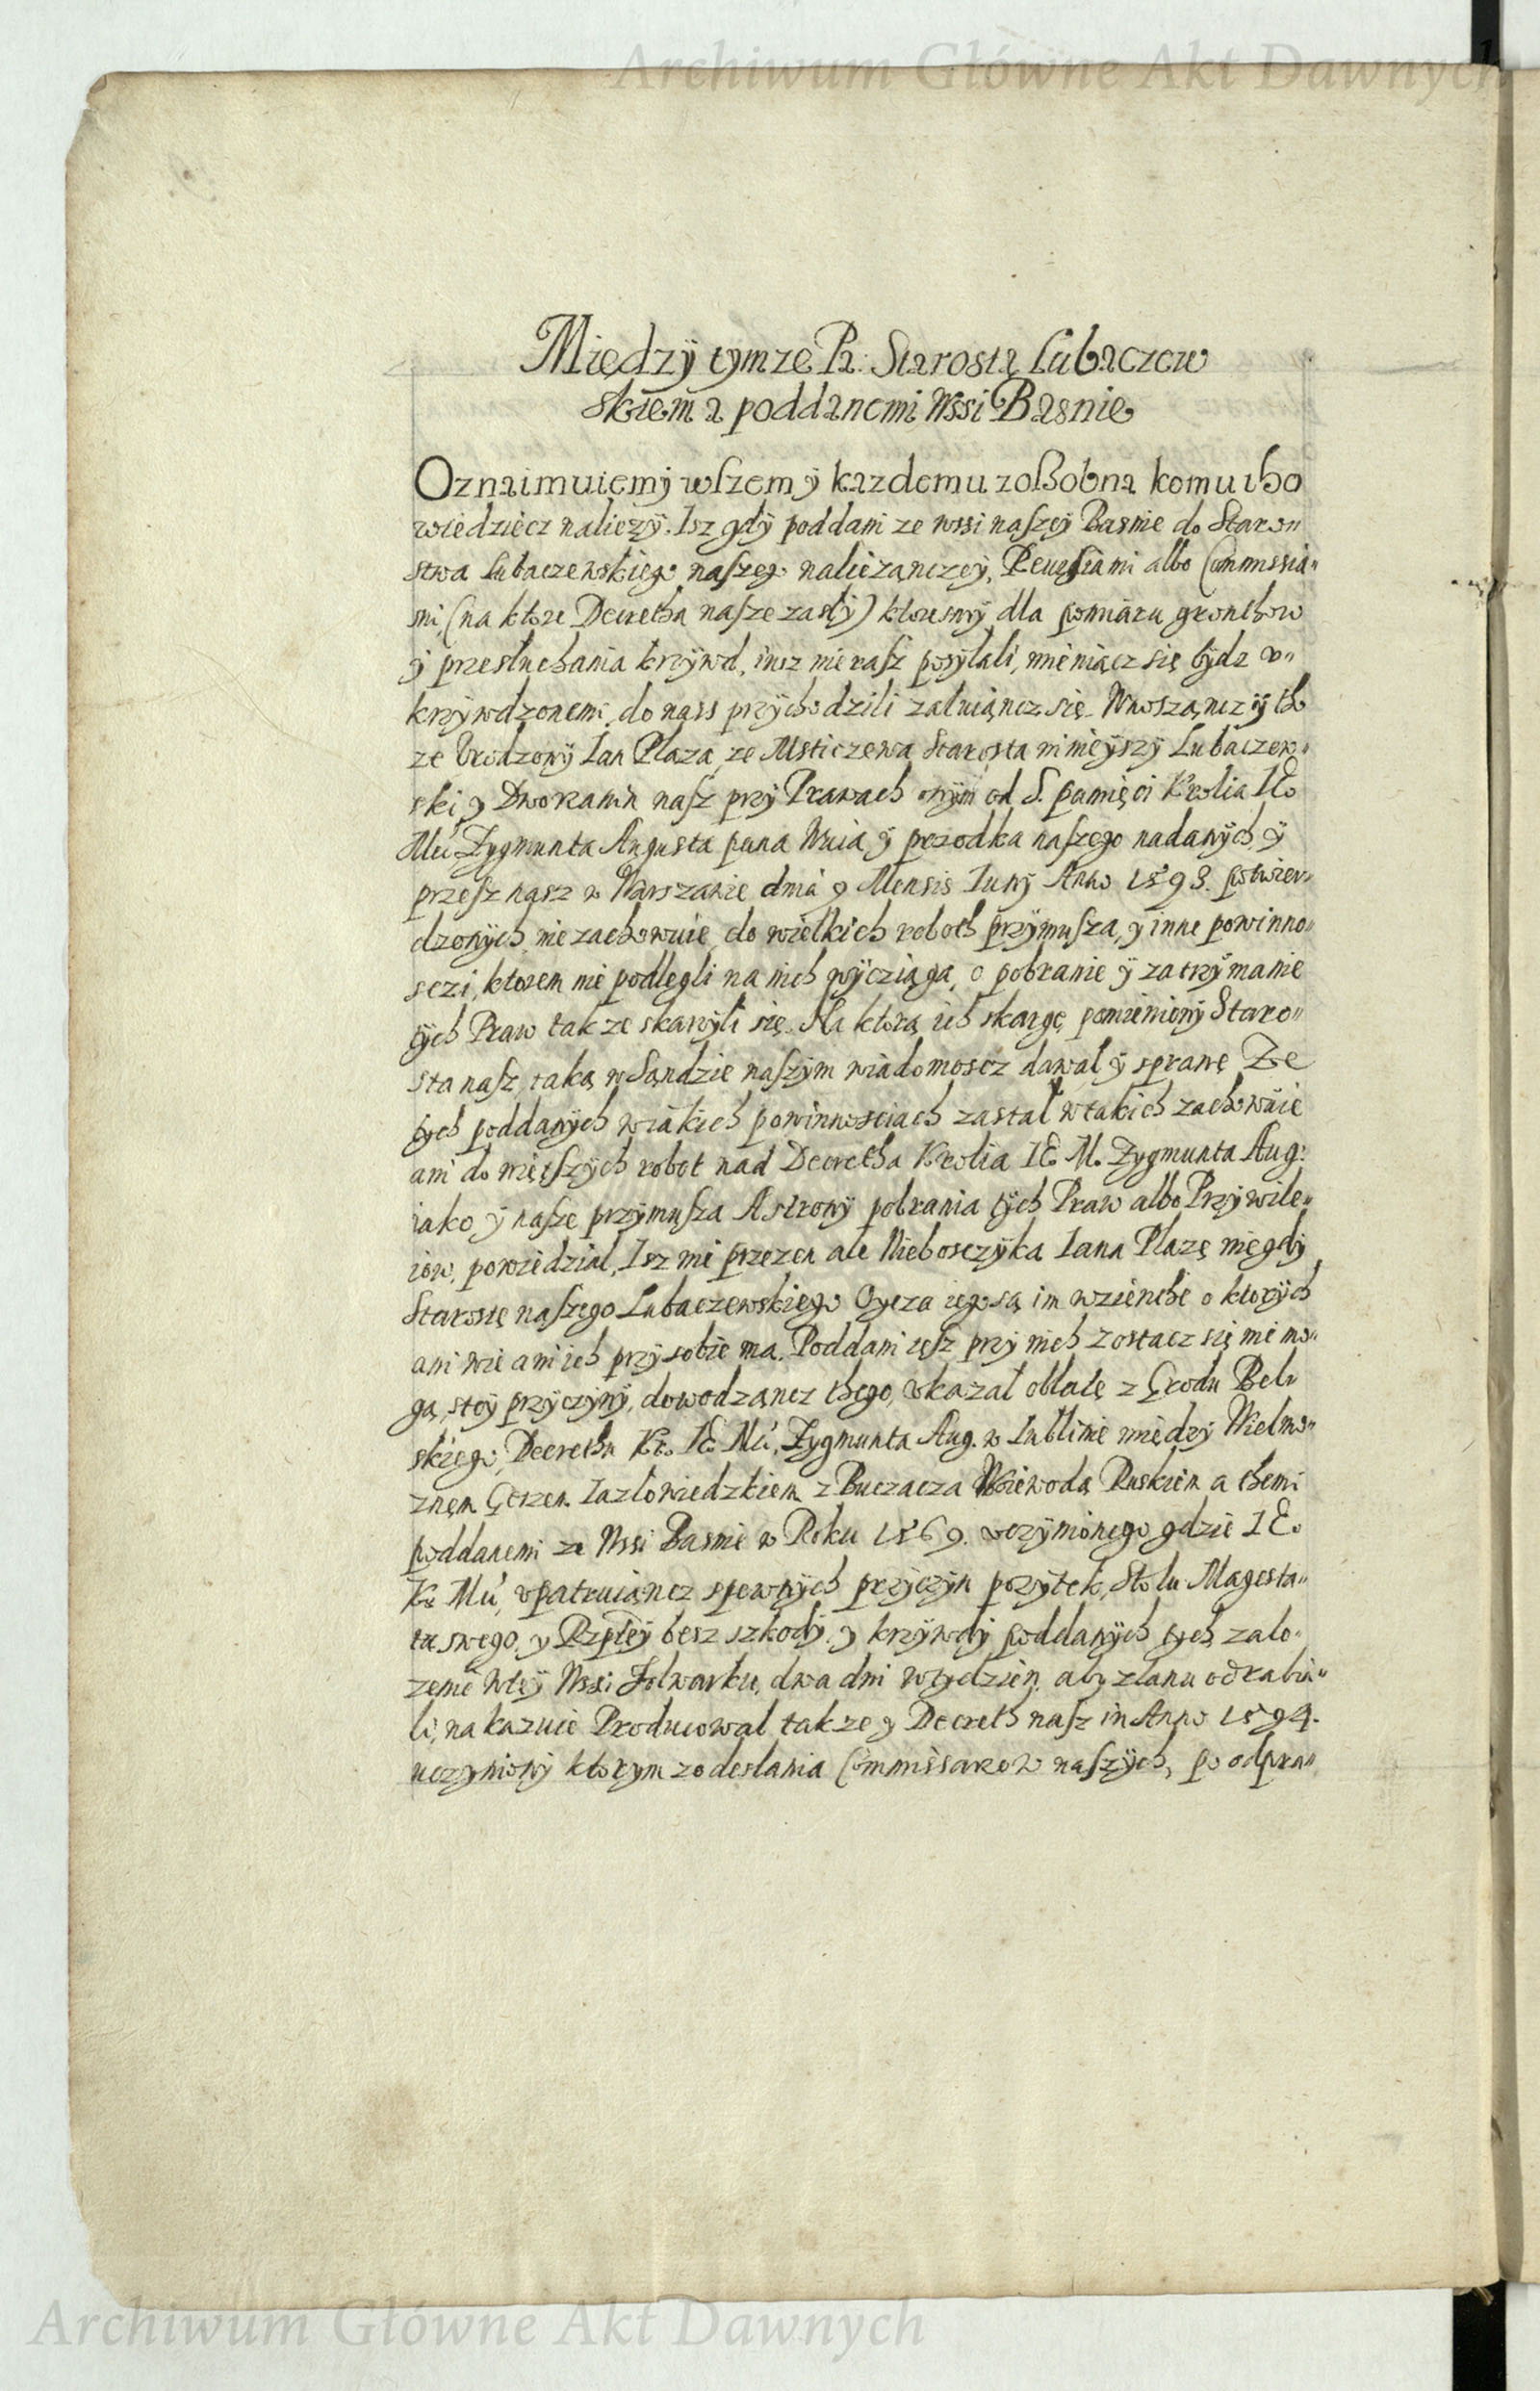 Archiwum Główne Akt Dawnych
Między tymze Pa: Starostą Lubaczew
skiem a poddanemi Wssi Basnie
Oznaimuiemy wszem y kazdemu zossobna komu tho
wiedziecz naliezy. Isz gdy poddani ze wssi naszey Basnie do Staro„
stwa Lubaczewskiego naszego naliezanczey, Reuisiami albo Commissia„
mi (na ktore Decretha nasze zasly) ktoresmy dla pomiaru gronthow
y przesluchania krzywd, insz nierasz posylali, mieniącz się bydz v„
krzywdzonemi do nass przychodzili zaluiąncz się. Wnosząncz yth
ze Vrodzony Ian Plaza ze Msticzewa Starosta ninieyszy Lubaczew„
ski y Dworanin nasz przy Prawach onym od S. pamięci Krolia IE°
Mći Zygmunta Augusta pana Wuia y przodka naszego nadanych y
przesz nasz w Warszawie dnia 9 Mensis Iunij Anno 1593. potwier„
dzonych nie zachowuie do wielkich roboth przymusza, y inne powinno„
sczi, ktorem nie podlegli na nich wycziąga, o pobranie y zatrzymanie
tych Praw takze skarzyli się. Na ktorą ich skargę pomieniony Staro„
sta nasz taką w Sąndzie naszym wiadomoscz dawal y sprawę Ze
tych poddanych wiakich powinnosciach zastal wtakich zachowuie
ani do więtszych robot nad Decretha Krolia IE M. Zygmunta Aug:
iako y nasze przymusza A strony pobrania tych Praw albo Przywile„
iow, powiedzial, Isz nie przezen ale Nieboszczyka Iana Plazę niegdy
Starostę naszego Lubaczewskiego Oycza iego są im wzienthe o ktorych
ani wie ani ich przy sobie ma. Poddani tesz przy nich zostacz się nie mo„
gą, stey przyczyny, dowodząncz thego, vkazal oblatę z Grodu Bel„
skiego, Decrethu Kr. IE Mći, Zygmunta Aug. w Lublinie między Wielmo„
znem Gerzem Iazlowiedzkiem z Buczacza Woiewodą Ruskiem a themi
poddanemi ze Wssi Basnie w Roku 1569. vczynionego gdzie IE°
Kr Mć, vpatruiąncz spewnych przyczyn pozytek, Stolu Magesta„
tu swego, y Rzpltey besz szkody y krzywdy poddanych tych zalo„
zenie wtey Wssi Folwarku, dwa dni wtydzien, aby zlanu odrabia„
li, nakazuie Producowal takze y Decreth nasz in Anno 1594.
uczyniony ktorym zodeslania Commissarzow naszych, po odpra„
Archiwum Główne Akt Dawnych